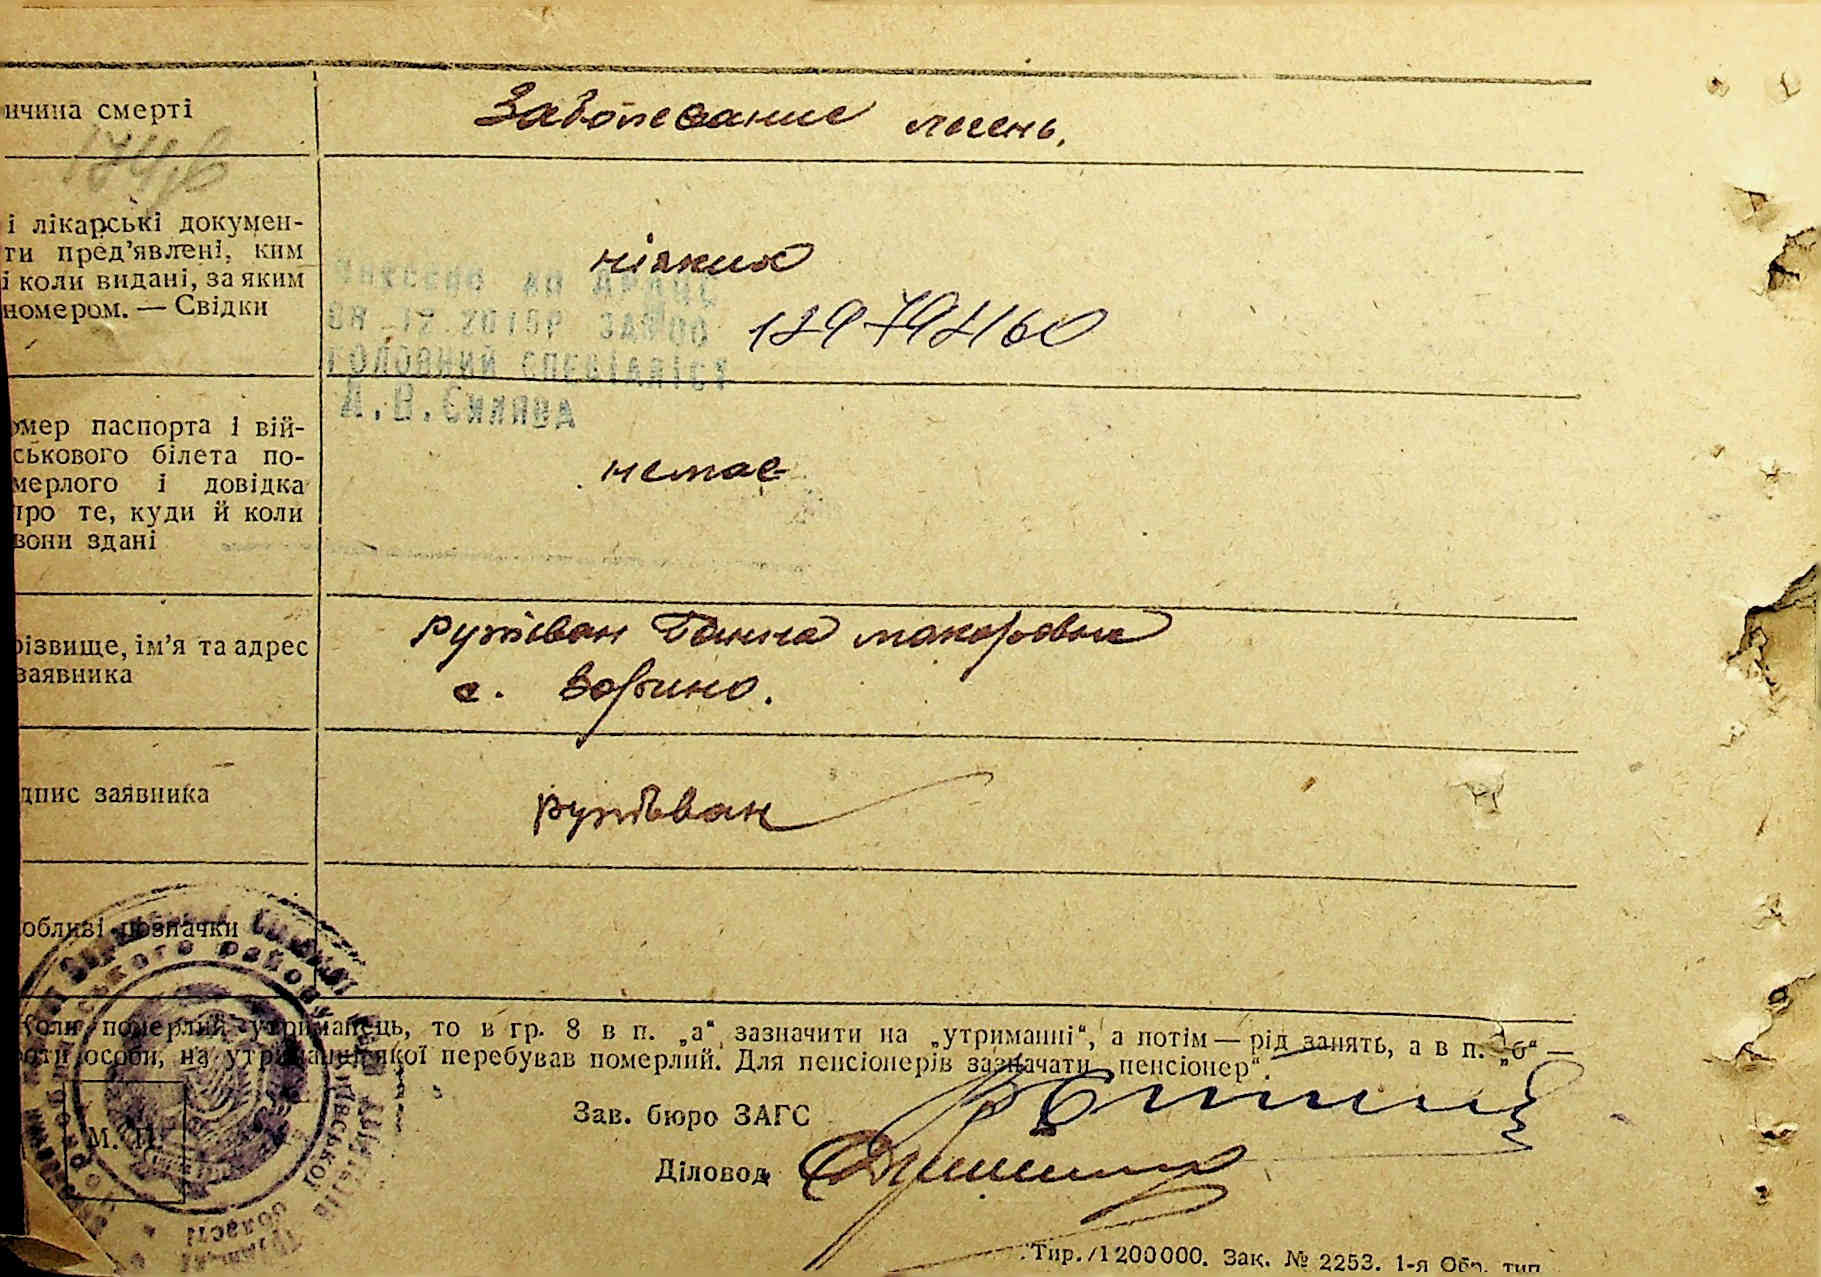 ичина смерті
Заболевание легень.
174,6
і лікарські докумен-
ти пред’явлені, ким
і коли видані, за яким
номером. — Свідки
ніяких
до ДРАЦС
ГОЛОВНИЙ СПЕЦІАЛІСТ
А.В.
омер паспорта і вій-
ськового білета по-
мерлого і довідка
про те, куди й коли
вони здані
немає
різвище, ім’я та адрес
заявника
Ганна Макаровна
с. Зорино.
дпис заявника
обливі позначки
ського району
Київської
області
Коли померлий утриманець, то в гр. 8 в п. „а“ зазначити на „утриманні“, а потім — рід занять, а в п. „б“ —
оти особи, на утриманні якої перебував померлий. Для пенсіонерів зазначати „пенсіонер“.
М. П.
Зав. бюро ЗАГС
Діловод
Тир. 1200000. Зак. № 2253. 1-я Обр. тип.